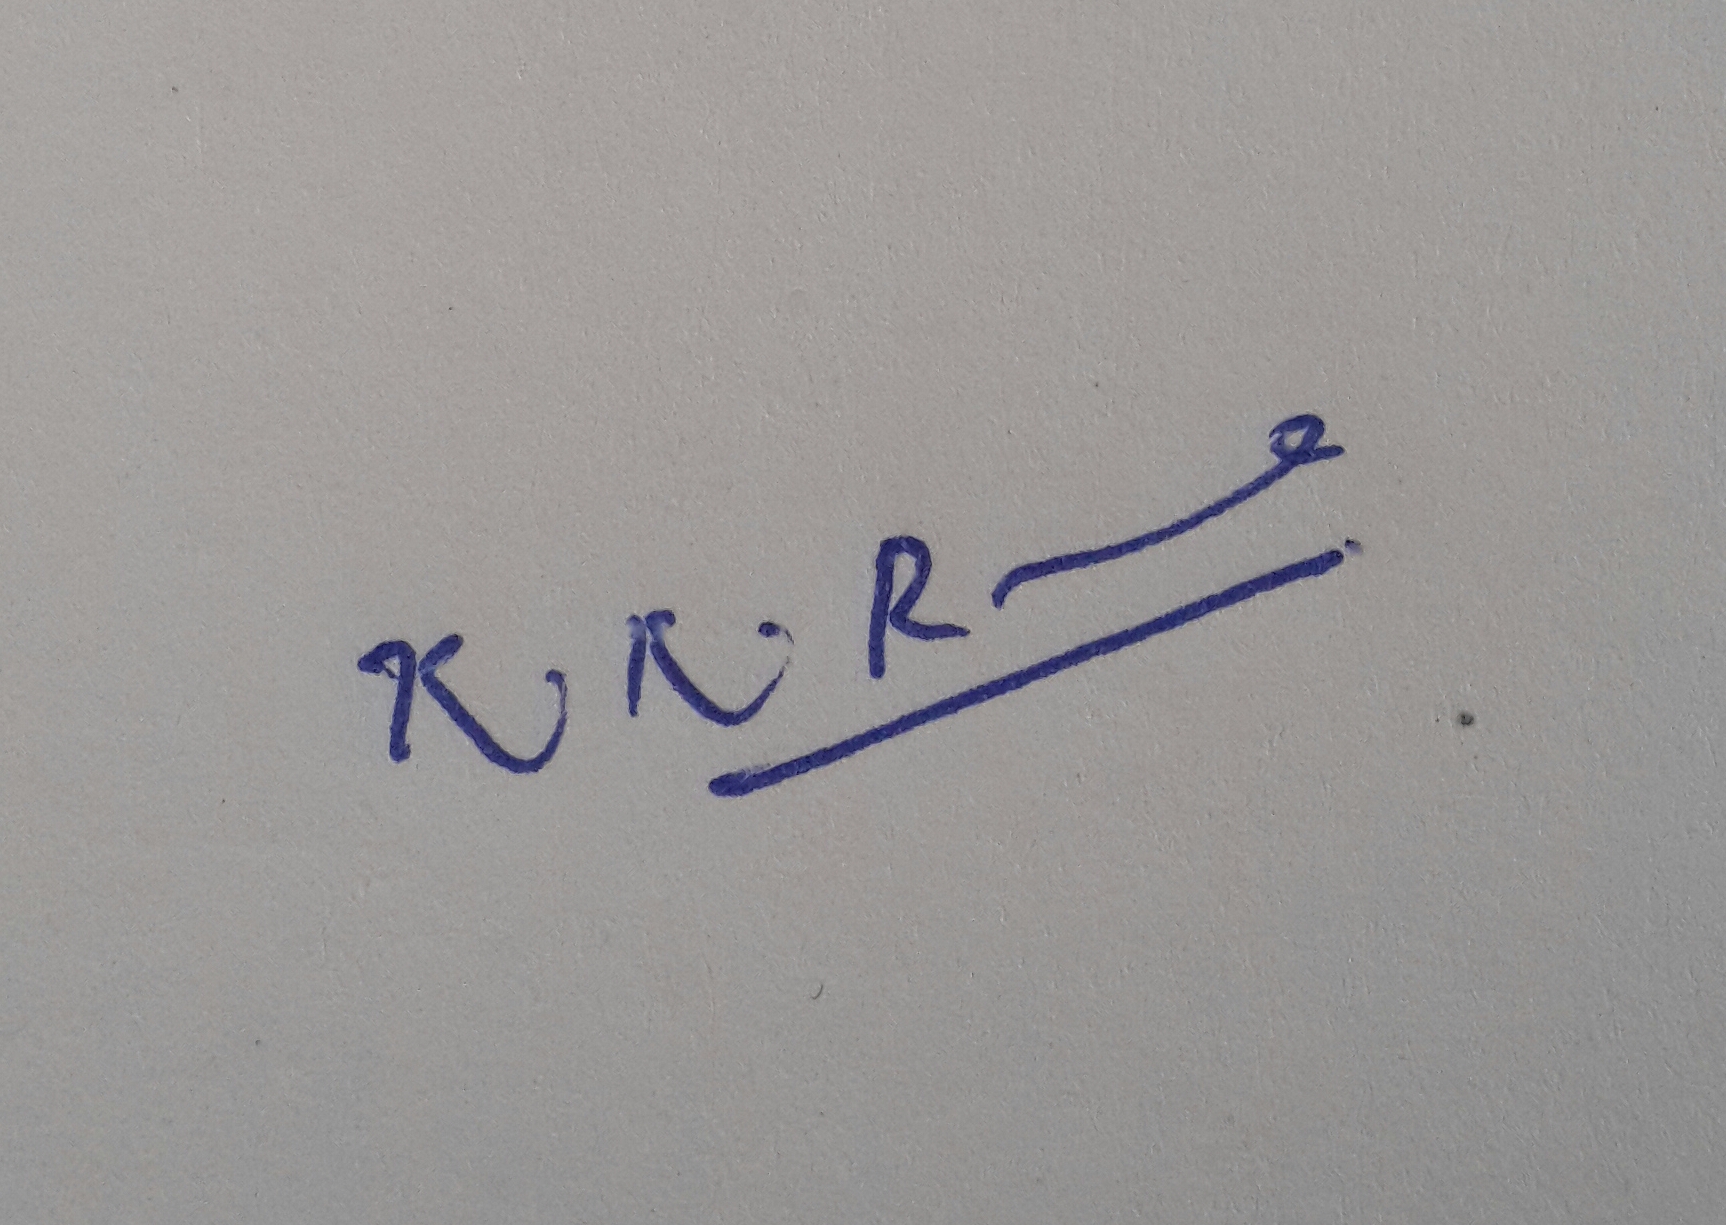 K K R